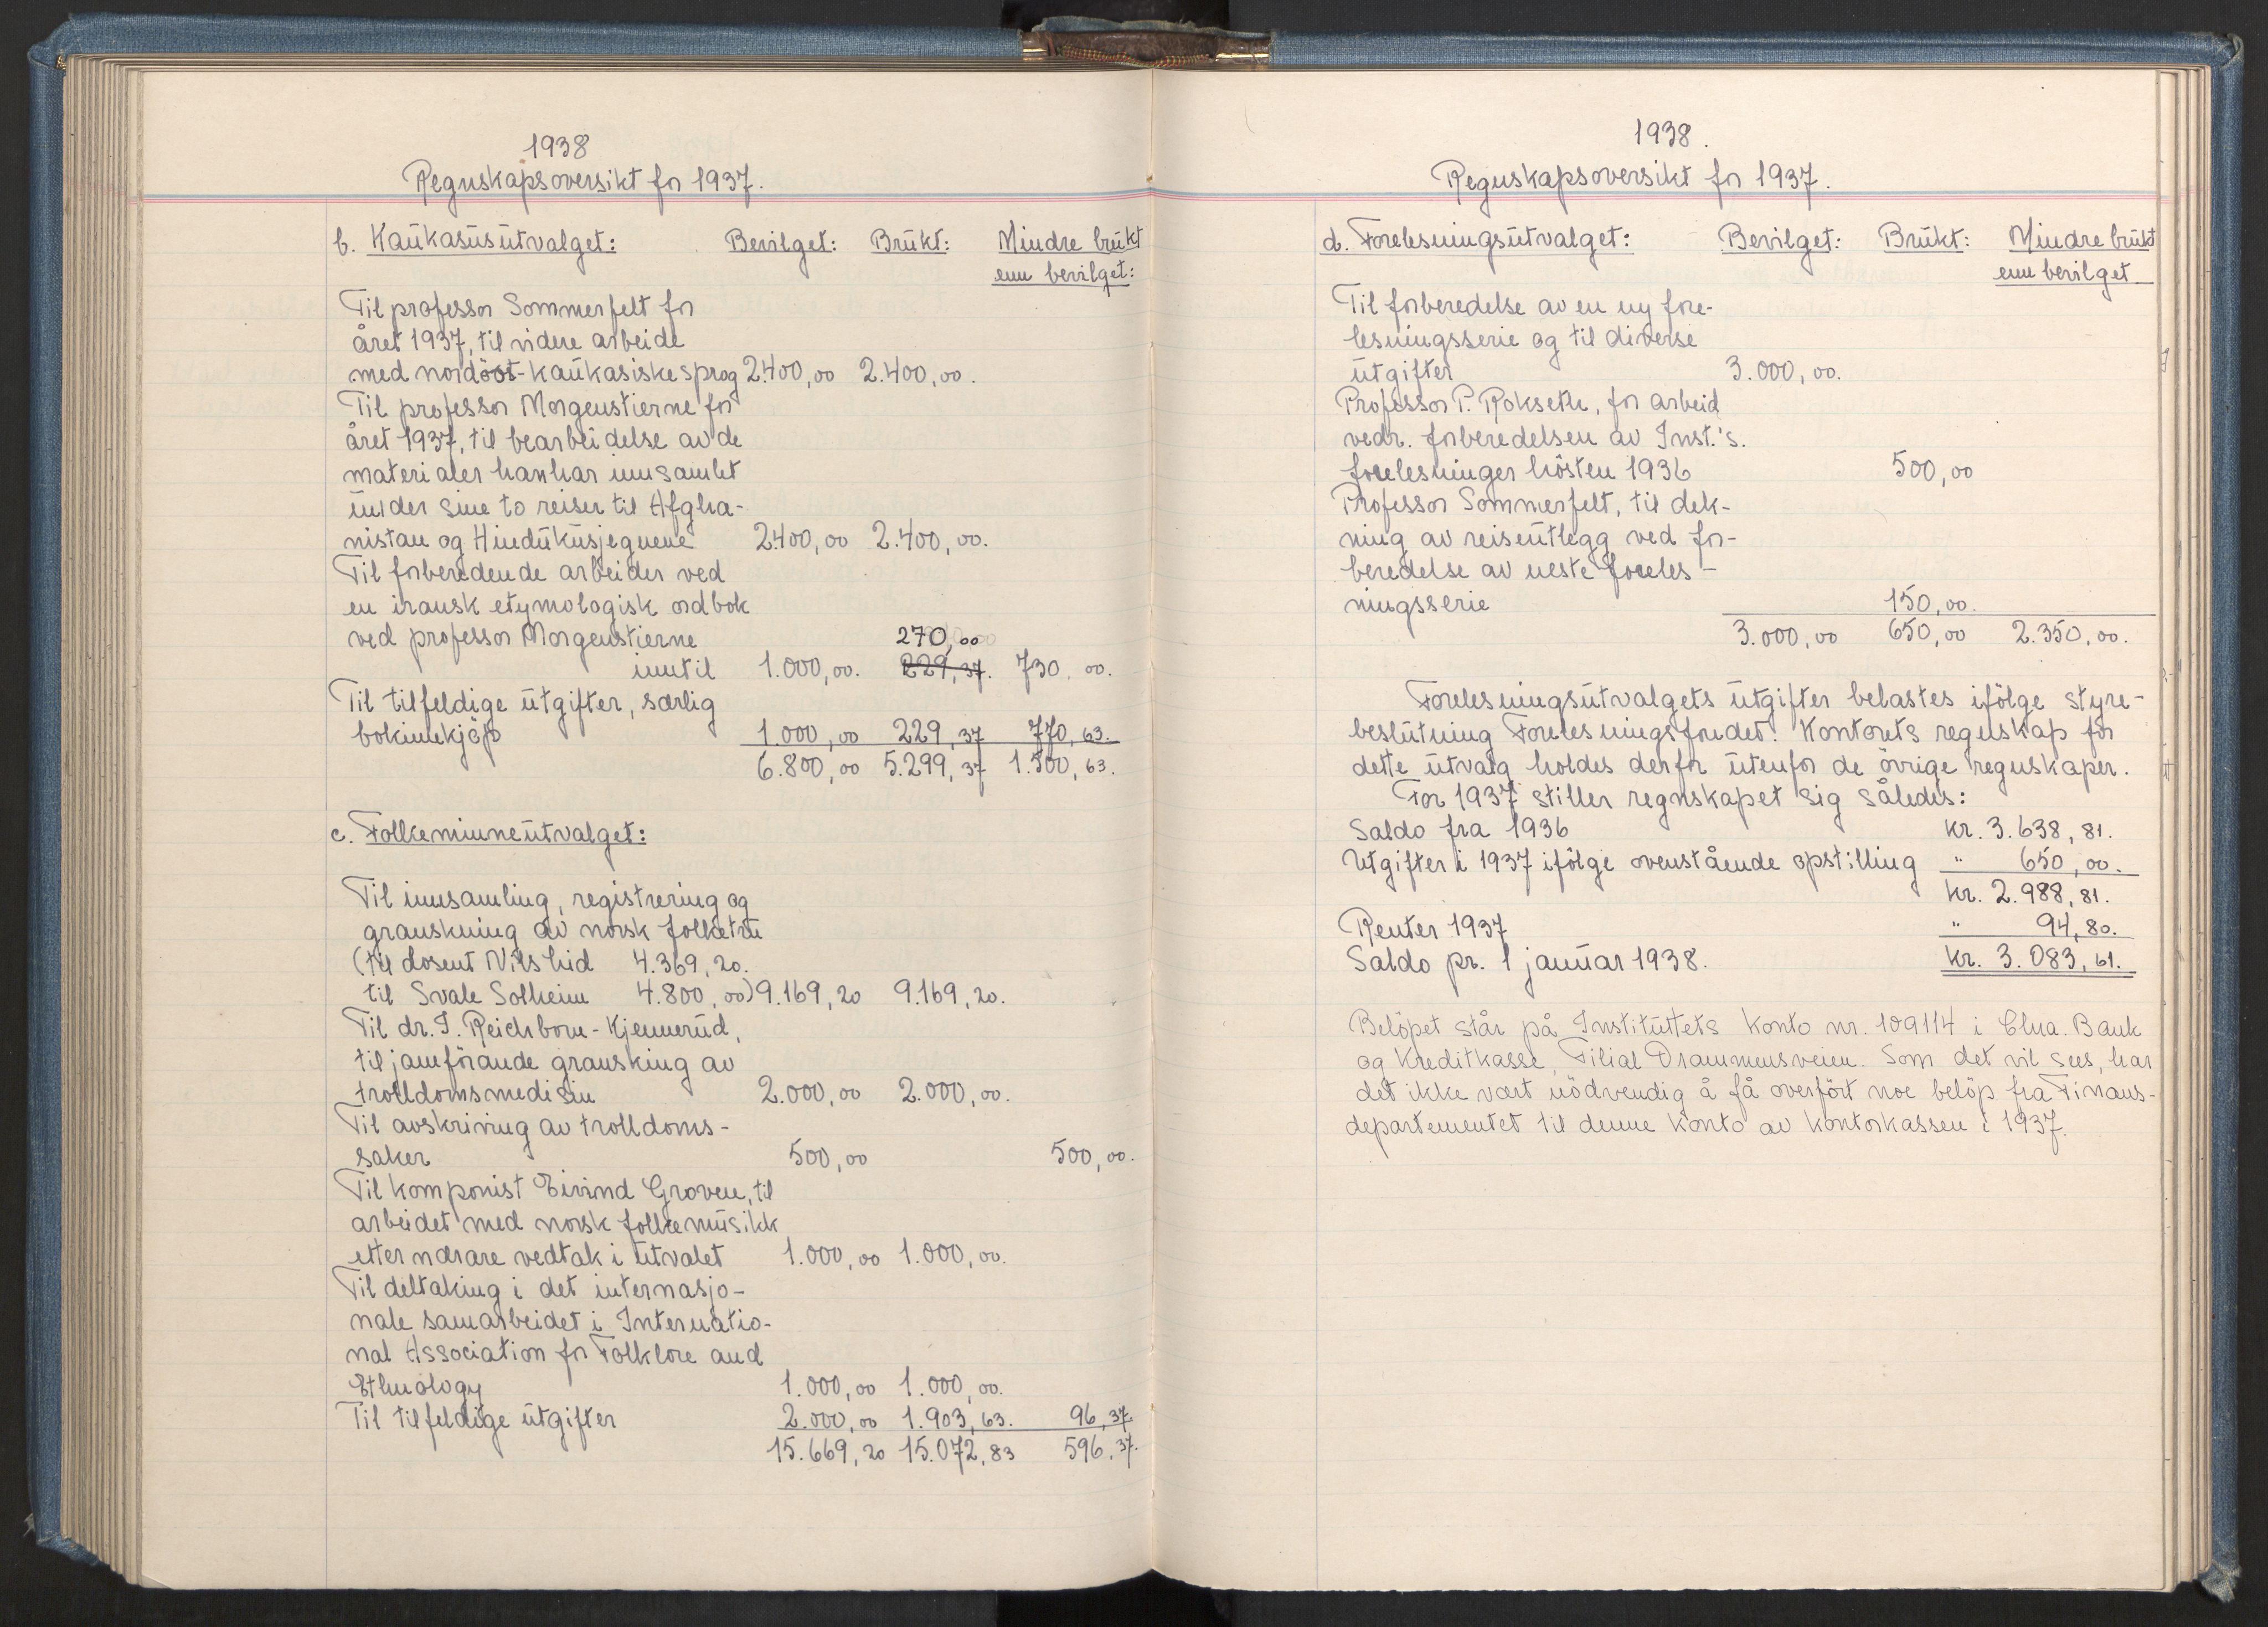 1938
Regnskapsoversikt for 1937.
b. Kaukasusutvalget: Bevilget: Brukt: Mindre brukt
enn bevilget:
Til professor Sommerfelt for
året 1937, til videre arbeide
med nordöst-kaukasiske sprog 2400,00 2.400,00.
Til professor Morgenstierne for
året 1937, til bearbeidelse av de
materialer han har innsamlet
under sine to reiser til Afgha-
nistan og Hindukusjegnene 2400,00 2.400,00.
Til forberedende arbeider ved
en iransk etymologisk ordbok
ved professor Morgenstierne 270,00
inntil 1.000,00. 229,37. 730,00.
Til tilfeldige utgifter, særlig
bokinnkjöp 1.000,00 229,37 770,63.
6.800,00 5.299,37 1.500,63.
c. Folkeminneutvalget:
Til innsamling, registrering og
granskning av norsk folketru
(til dosent Nils Lid 4.369,20.
til Svale Solheim 4.800,00) 9.169,20 9.169,20.
Til dr. I. Reichborn-Kjennerud,
til jamförande gransking av
trolldomsmedisin 2.000,00 2.000,00.
Til avskriving av trolldoms-
saker 500,00 500,00.
Til komponist Eivind Groven, til
arbeidet med norsk folkemusikk
etter nærare vedtak i utvalet 1.000,00 1.000,00.
Til deltaking i det internasjo-
nale samarbeidet i Internatio-
nal Association for Folklore and
Ethnology 1.000,00 1.000,00.
Til tilfeldige utgifter 2.000,00 1.903,63. 96,37.
15.669,20 15.072,83 596,37.
1938.
Regnskapsoversikt for 1937.
d. Forelesningsutvalget: Bevilget: Brukt: Mindre brukt
enn bevilget
Til forberedelse av en ny fore-
lesningsserie og til diverse
utgifter 3.000,00.
Professor P. Rokseth, for arbeid
vedr. forberedelsen av Inst.'s.
forelesninger hösten 1936 500,00
Professor Sommerfelt, til dek-
ning av reiseutlegg ved for-
beredelse av neste foreles-
ningsserie 150,00.
3.000,00 650,00 2.350,00.
Forelesningsutvalgets utgifter belastes ifölge styre-
beslutning Forelesningsfondet. Kontorets regnskap for
dette utvalg holdes derfor utenfor de övrige regnskaper.
For 1937 stiller regnskapet sig således:
Saldo fra 1936 kr. 3.638,81.
Utgifter i 1937 ifölge ovenstående opstilling " 650,00.
kr. 2.988,81.
Renter 1937 " 94,80.
Saldo pr. 1 januar 1938. kr. 3.083,61.
Belöpet står på Instituttets konto nr. 109114 i Chra. Bank
og Kreditkasse, Filial Drammensveien. Som det vil sees, har
det ikke vært nödvendig å få overfört noe belöp fra Finans-
departementet til denne konto av kontorkassen i 1937.